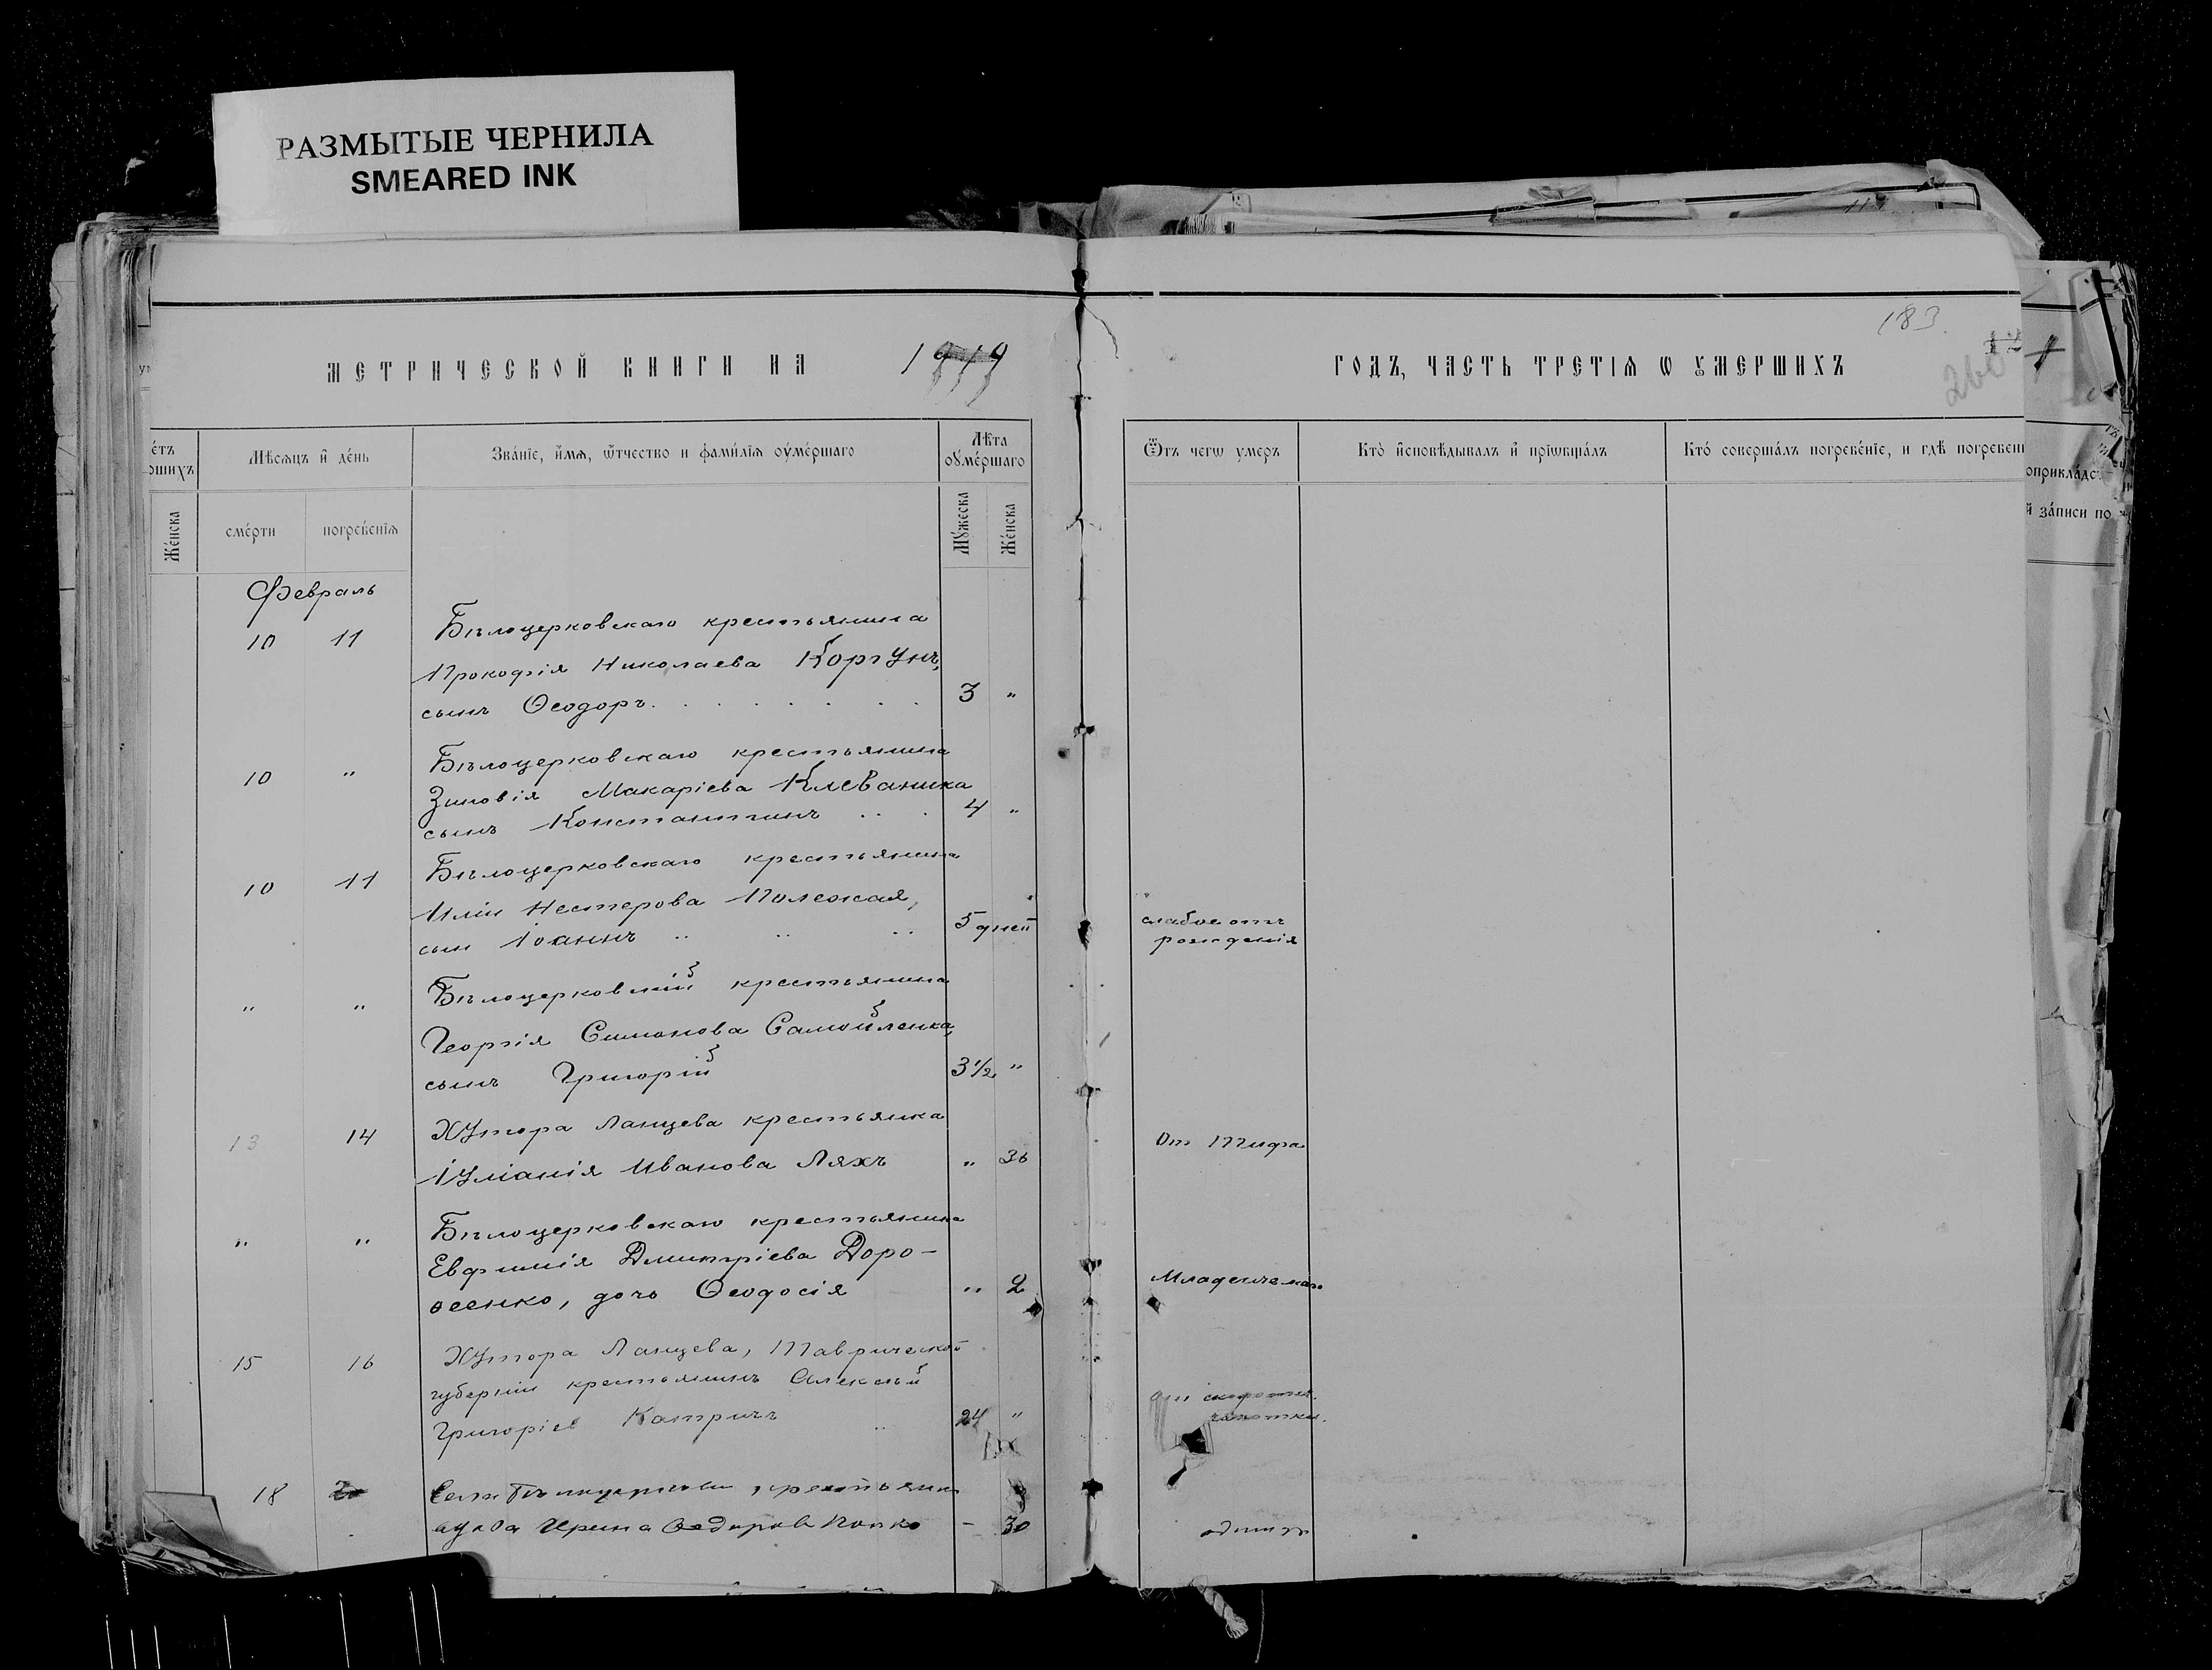 РАЗМЫТЫЕ ЧЕРНИЛА
SMEARED INK
183
МЕТРИЧЕСКОЙ КНИГИ НА 1919
ГОДЪ, ЧАСТЬ ТРЕТІѦ Ѡ ОУМЕРШИХЪ
Мѣсѧцъ и҆ де́нь
Зва́нїе, и҆́мѧ, ѿтчество и фами́лїѧ оу҆ме́ршагѡ
Лѣ́та
оу҆ме́ршагѡ
Ѿъ чегѡ умеръ
Кто̀ и҆сповѣ́дывалъ и҆ прїѡбща́лъ
Кто́ соверша́лъ погребе́нїе, и гдѣ̀ погребен
оприкла́дс
й за́писи по
Же́нска
сме́рти
погребе́нїѧ
Му́жеска
Же́нска
Февраль
10 11 Бѣлоцерковскаго крестьянина
Прокофія Николаева Коргунъ,
сынъ Ѳеодоръ. 3 "
10 " Бѣлоцерковскаго крестьянина
Зиновія Макаріева Клеваника
сынъ Константинъ 4 "
10 11 Бѣлоцерковскаго крестьянина
Иліи Нестерова Полежая,
сын Іоаннъ 5 дней слабое отъ
рожденія
" " Бѣлоцерковскій крестьянина
Георгія Симонова Самойленка,
сынъ Григорій 3 1/2 "
13 14 Хутора Ланцева крестьянка
Іуліанія Иванова Ляхъ " 36 От Тифа
" " Бѣлоцерковскаго крестьянина
Евфимія Дмитріева Доро-
ѳеенко, дочь Ѳеодосія " 2 Младенческаго
15 16 Хутора Ланцева, Таврической
губерніи крестьянинъ Алексѣй
Григоріев Катричъ 24 " чахотки.
18 крестьянк
вдова Ирина Федоров Попко - 30